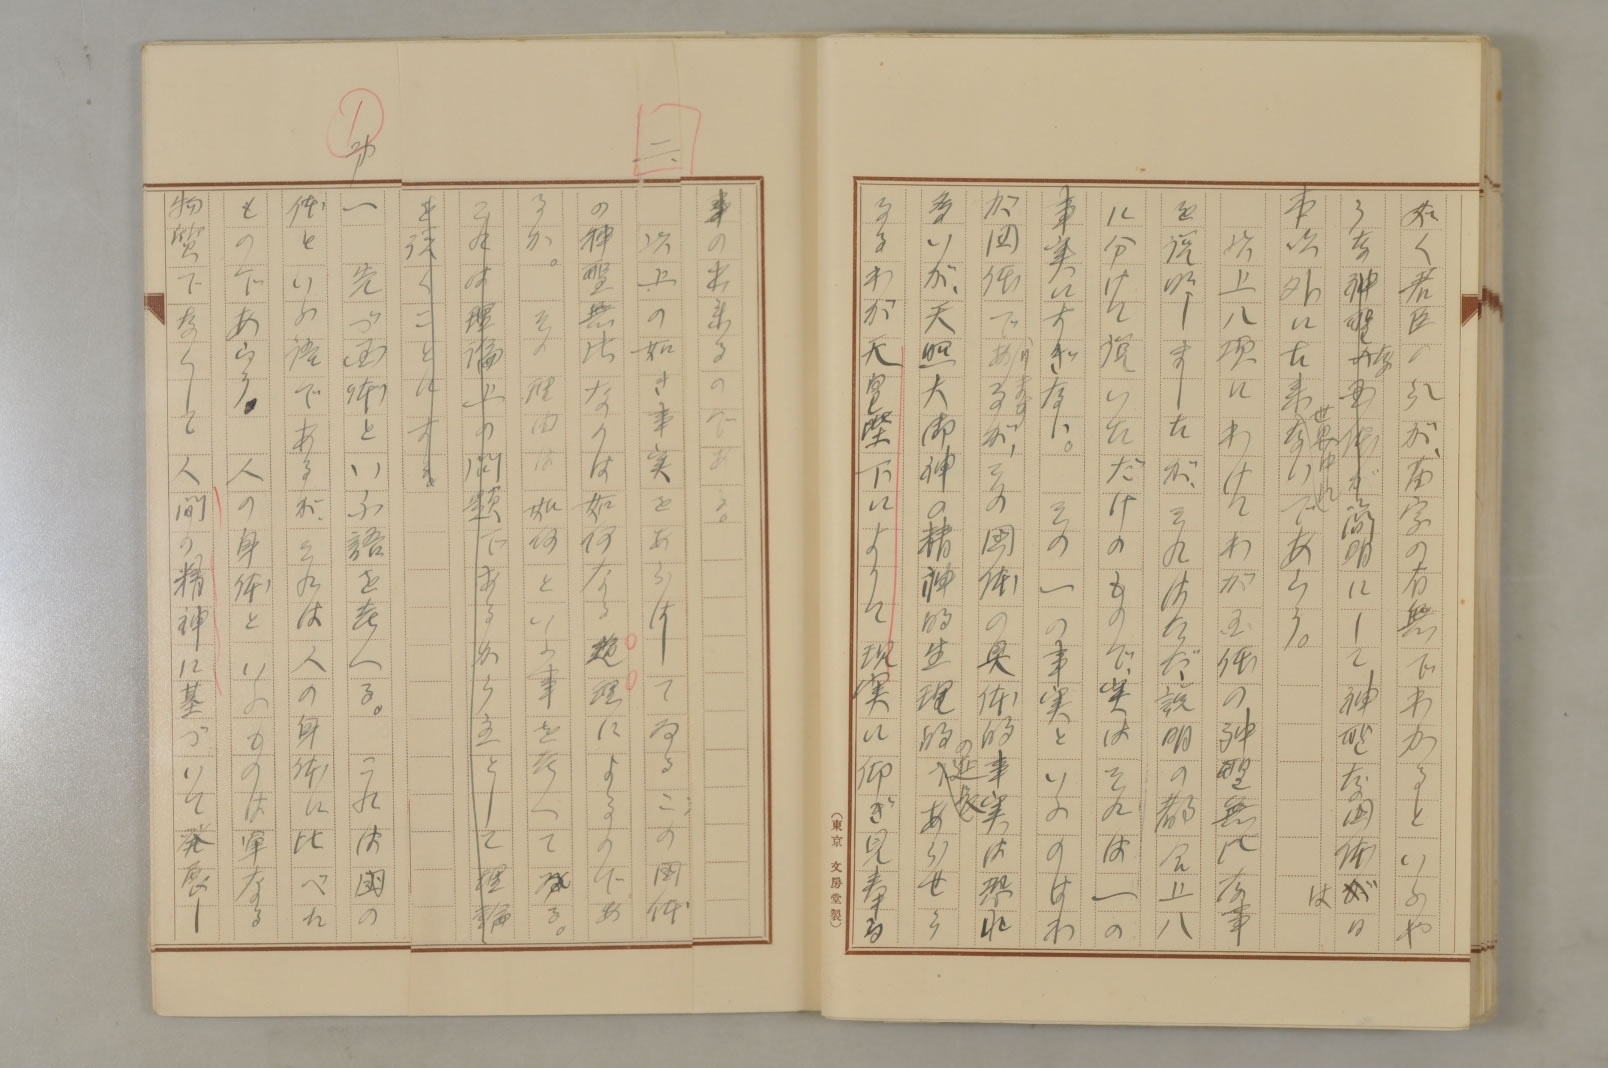 如く君臣の別が、苗字の有無でわかるといふや
うな神聖な国体が簡明にして神聖な国体は日
本以外に世界中に出来ないであらう。
以上八項にわけてわが国体の神聖無比な事
を説明しましたが、それはたゞ説明の都合上八
に分けて説いただけのもので、実はそれは一の
事実にすぎない。その一の事実といふのはわ
が国体であるが、その国体の具体的事実は恐れ
多いが、天照大御神の精神的生理的の延長であらせら
るるわが天皇陛下によりて現実に仰ぎ見奉る
事の出来るのである。
二、
以上の如き事実をあらはしてゐるこの国体
の神聖無比なのは如何なる理によるのであ
るか。その理由は如何といふ事を考へて見る。
これは理論上の問題であるから主として理論
を説くことにする。
①
一 先づ国体といふ語を考へる。これは国の
体といふ語であるが、それは人の身体に比べた
ものであらう。人の身体といふものは単なる
物質でなくして人間の精神に基づいて発展し
(東京 文房堂製)